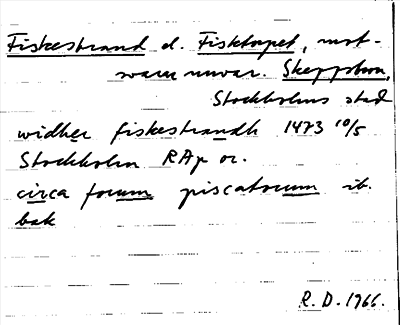 Fiskestrand el. Fisktorpet, mot-
svarar nuvar. Skeppsbron,
Stockholms stad
widher fiskestrandh 1473 10/5
Stockholm RAp or.
circa forum piscatorum ib.
bak
R. D. 1966.